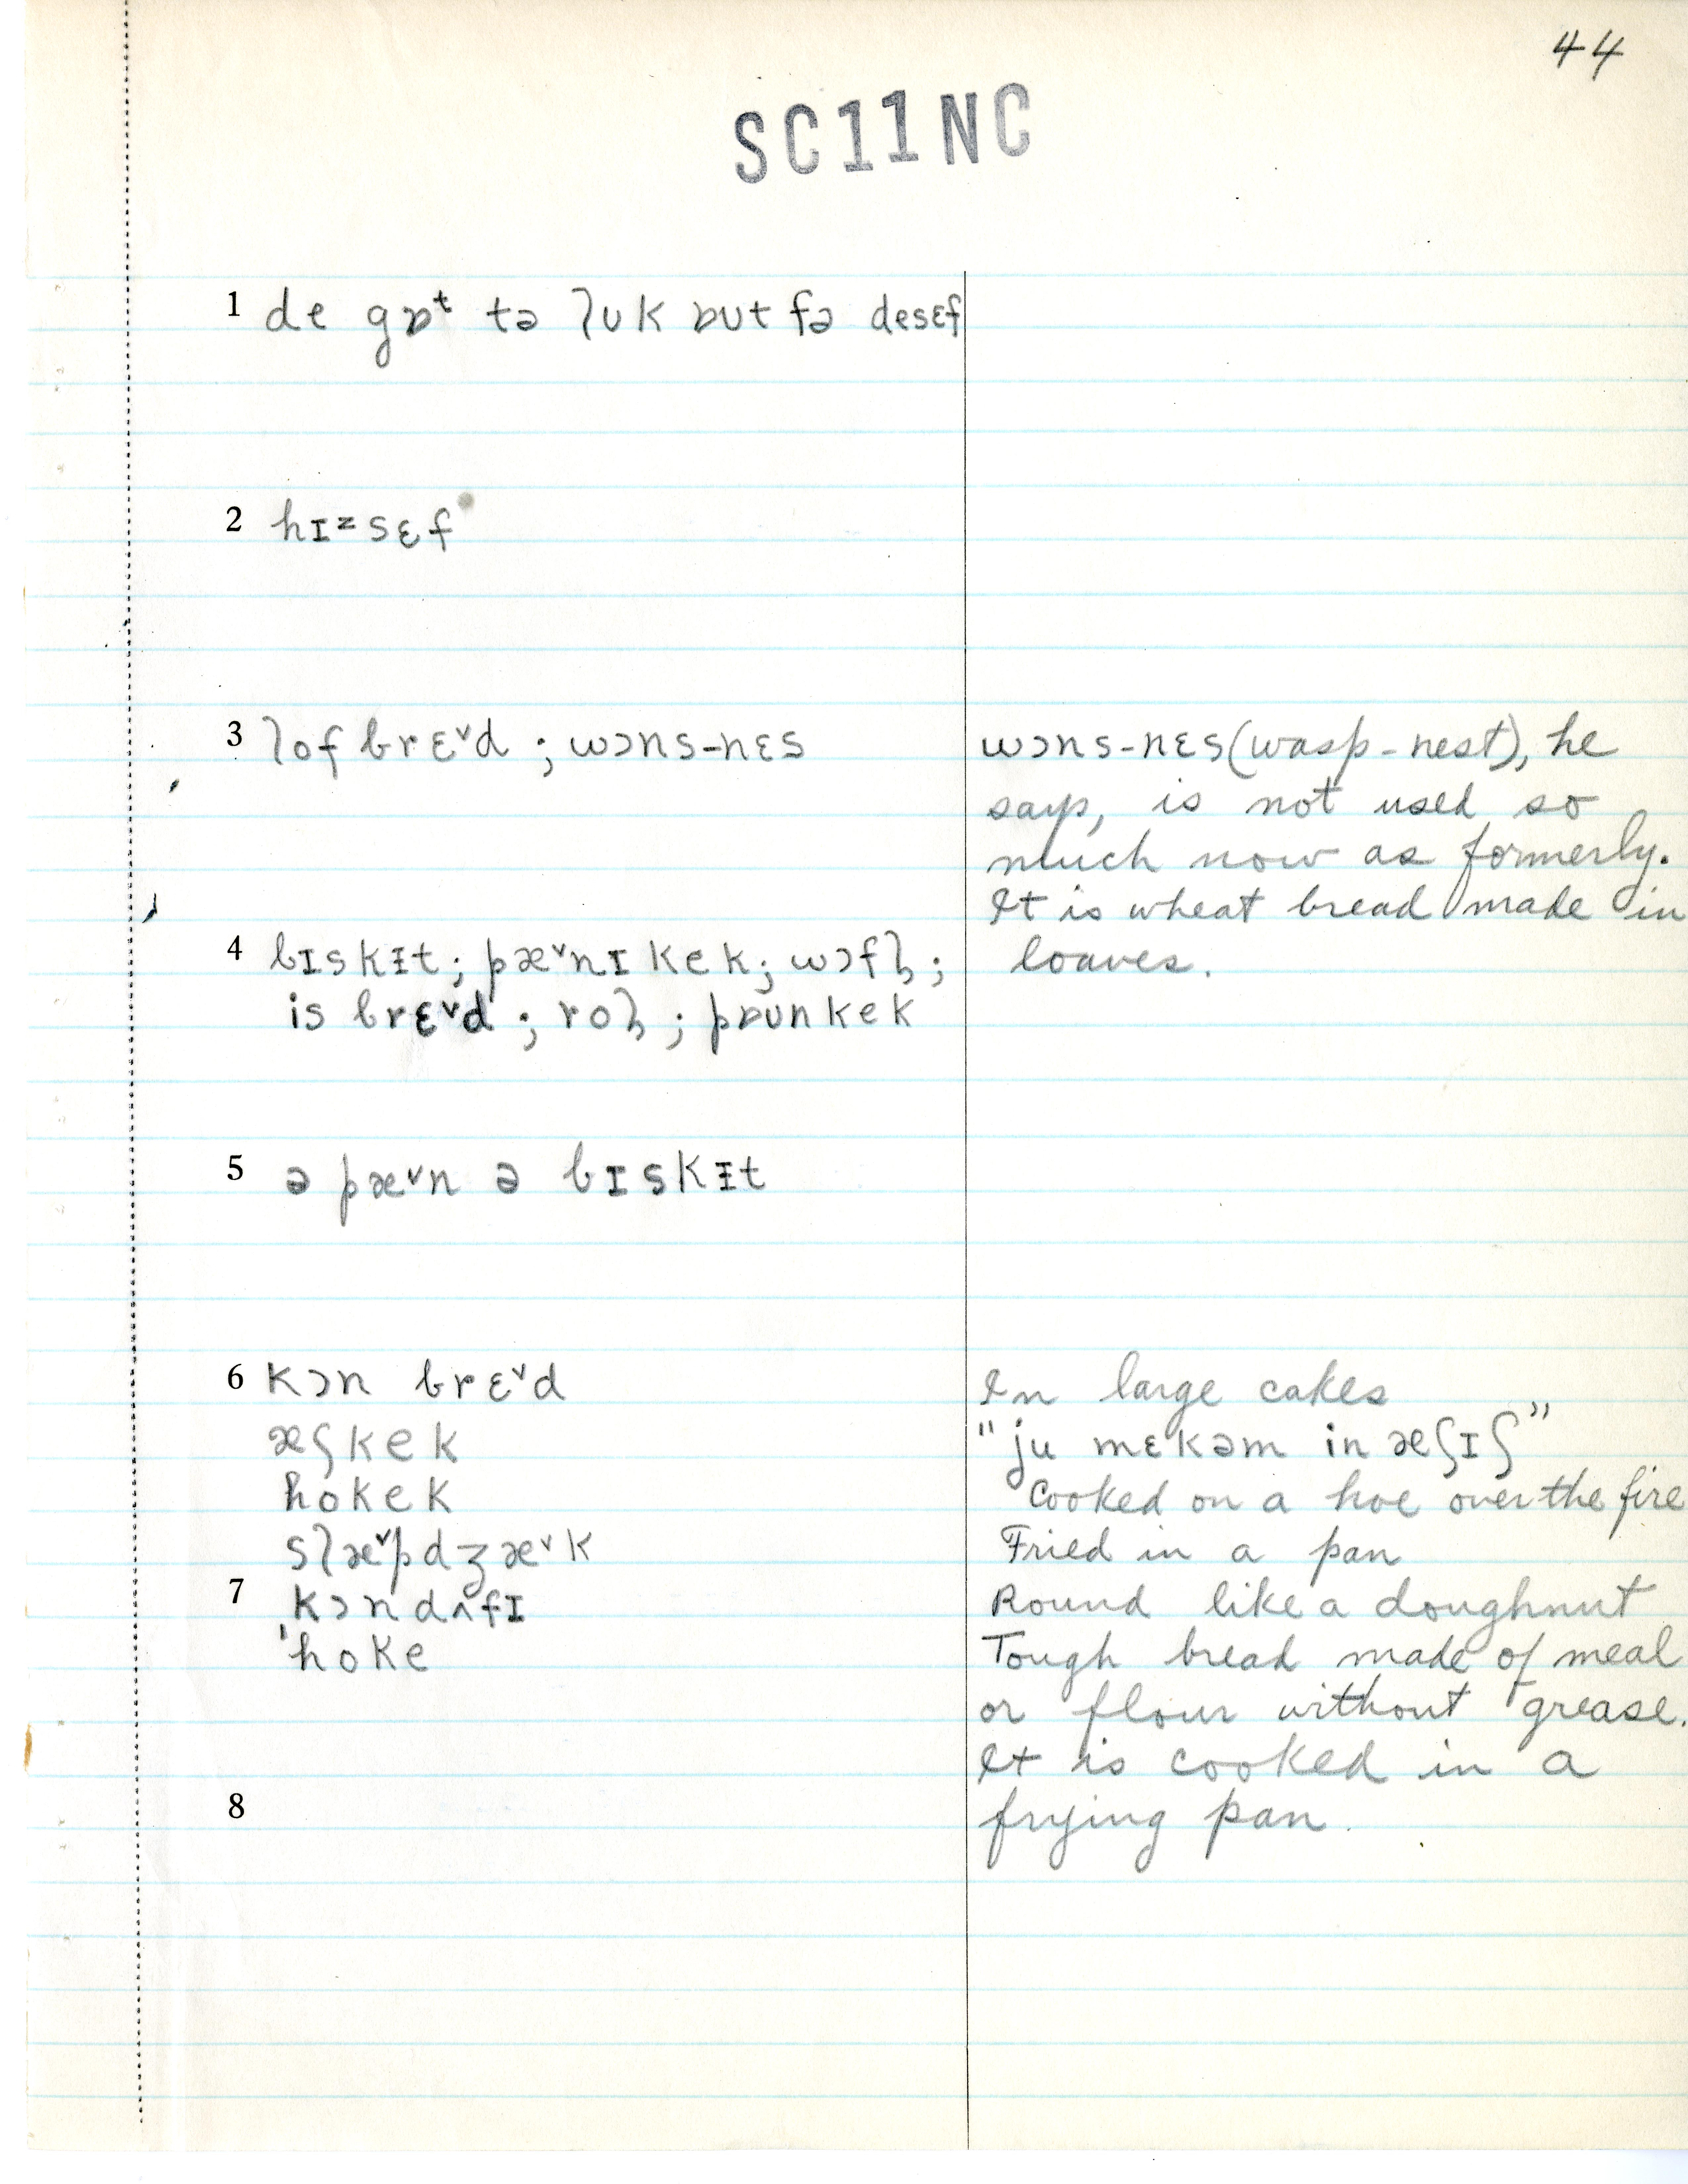 44
SC11NC
1 de gɒᵗ tə lʊk ɒʊt fə desɛf
2 hɪᶻsɛf
3 lof brɛ˅d ; wɔns-nɛs
wɔns-nɛs (wasp-nest), he
says, is not used so
much now as formerly.
It is wheat bread made in
loaves.
4 bɪskɪ̵t; pæ˅nɪkek; wɔfl̩;
is brɛ˅d ; rol̩ ; pɒʊnkek
5 ə pæ˅n ə bɪskɪ̵t
6 kɔn brɛ˅d
In large cakes
æʃkek
"ju mɛkəm in æʃɪʃ"
hokek
Cooked on a hoe over the fire
slæ˅pdʒæ˅k
Fried in a pan
7 kɔndʌfɪ
Round like a doughnut
ˈhoke
Tough bread made of meal
or flour without grease.
It is cooked in a
frying pan.
8